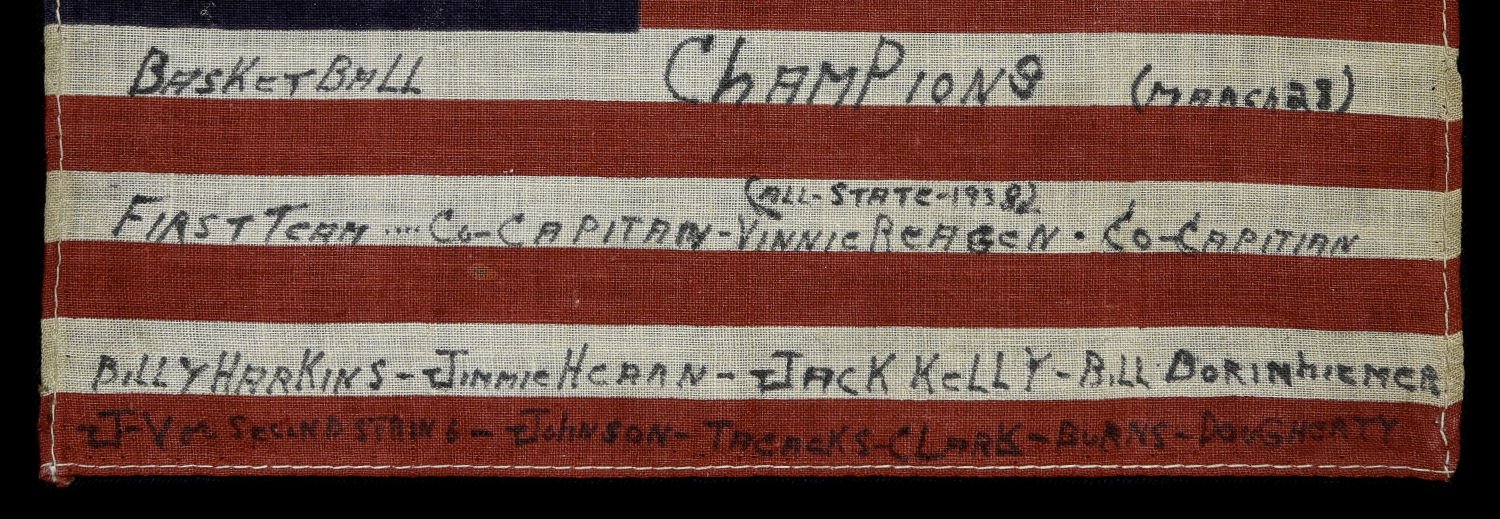 BASKETBALL ChAMPIONS (MARCh 28)
(ALL-STATE-1938)
FIRST TEAM .... Co-CAPITAIN-VINNIE REAGEN · Co-CAPITIAN
BILLY HARKINS - JIMMIE HERAN - JACK KELLY - BILL DORINhIEMER
SECOND STRING - JOHNSON - CLARK - BURNS - DOUGHERTY